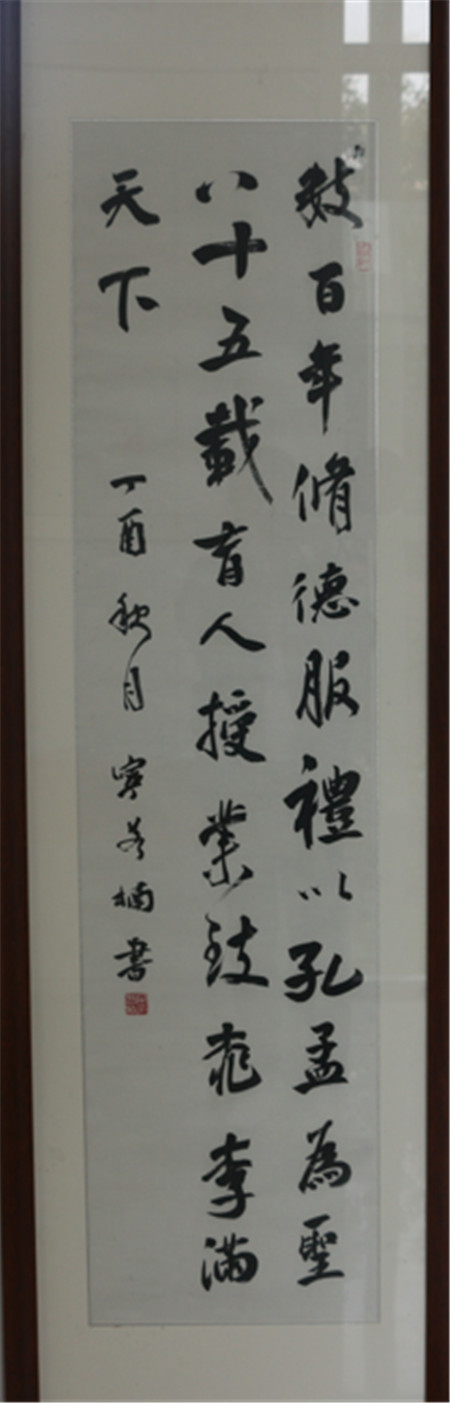 数百年脩德服禮以孔孟為聖
八十五載育人授業致桃李滿
天下
丁酉秋月 若楠書